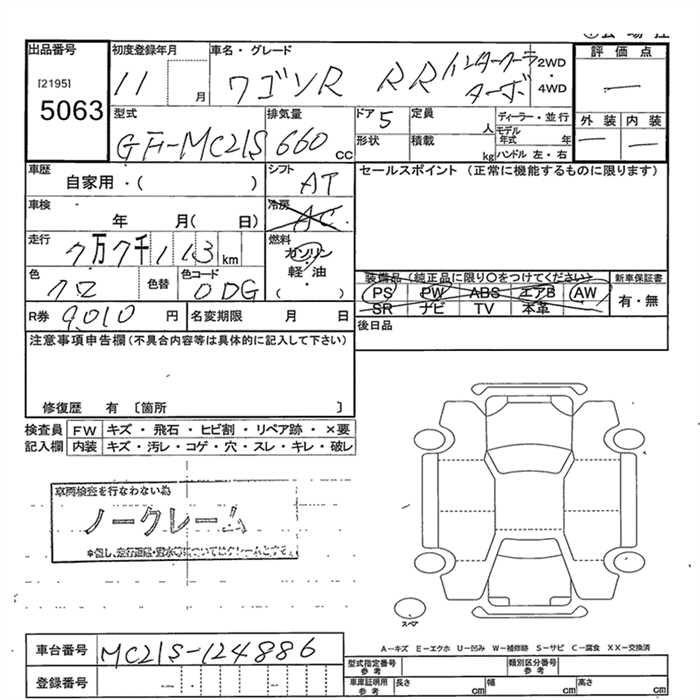 出品番号
[2195]
5063
初度登録年月
11 月
車名・グレード
ワゴンR RR インタークーラーターボ
2WD・4WD
評価点
—
外装 内装
— —
型式
GF-MC21S
排気量
660 cc
ドア 5
定員 人
形状
積載 kg
ディーラー・並行
モデル年式 年
ハンドル 左・右
車歴
自家用・( )
シフト
AT
車検
年 月( 日)
冷房
AC
走行
7万7千113 km
燃料
ガソリン
軽・油
( )
色
クロ
色替
色コード
0DG
R券 9,010 円
名変期限 月 日
セールスポイント (正常に機能するものに限ります)
装備品(純正品に限り○をつけてください)
PS PW ABS エアB AW
SR ナビ TV 本革
新車保証書
有・無
後日品
注意事項申告欄(不具合内容等は具体的に記入して下さい)
修復歴 有〔箇所 〕
検査員記入欄
FW キズ・飛石・ヒビ割・リペア跡・×要
内装 キズ・汚レ・コゲ・穴・スレ・キレ・破レ
車両検査を行なわない為
ノークレーム
スペア
A−キズ E−エクボ U−凹み W−補修跡 S−サビ C−腐食 XX−交換済
車台番号 MC21S-124886
登録番号
型式指定番号 参考
類別区分番号 参考
車庫証明用 参考
長さ cm 幅 cm 高さ cm